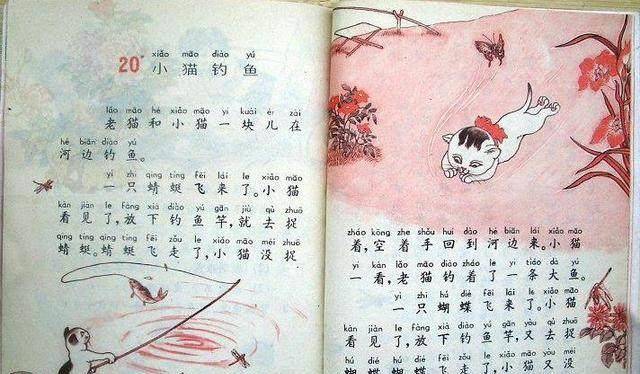 xiǎo māo diào yú
20 小猫钓鱼
lǎo māo hé xiǎo māo yí kuài ér zài
老猫和小猫一块儿在
hé biān diào yú
河边钓鱼。
yì zhī qīng tíng fēi lái le xiǎo māo
一只蜻蜓飞来了。小猫
kàn jiàn le fàng xià diào yú gān jiù qù zhuō
看见了,放下钓鱼竿,就去捉
qīng tíng qīng tíng fēi zǒu le xiǎo māo méi zhuō
蜻蜓。蜻蜓飞走了,小猫没捉
zháo kōng zhe shǒu huí dào hé biān lái xiǎo māo
着,空着手回到河边来。小猫
yí kàn lǎo māo diào zháo le yì tiáo dà yú
一看,老猫钓着了一条大鱼。
yì zhī hú dié fēi lái le xiǎo māo
一只蝴蝶飞来了。小猫
kàn jiàn le fàng xià diào yú gān yòu qù zhuō
看见了,放下钓鱼竿,又去捉
hú dié hú dié fēi zǒu le xiǎo māo yòu méi
蝴蝶。蝴蝶飞走了,小猫又没